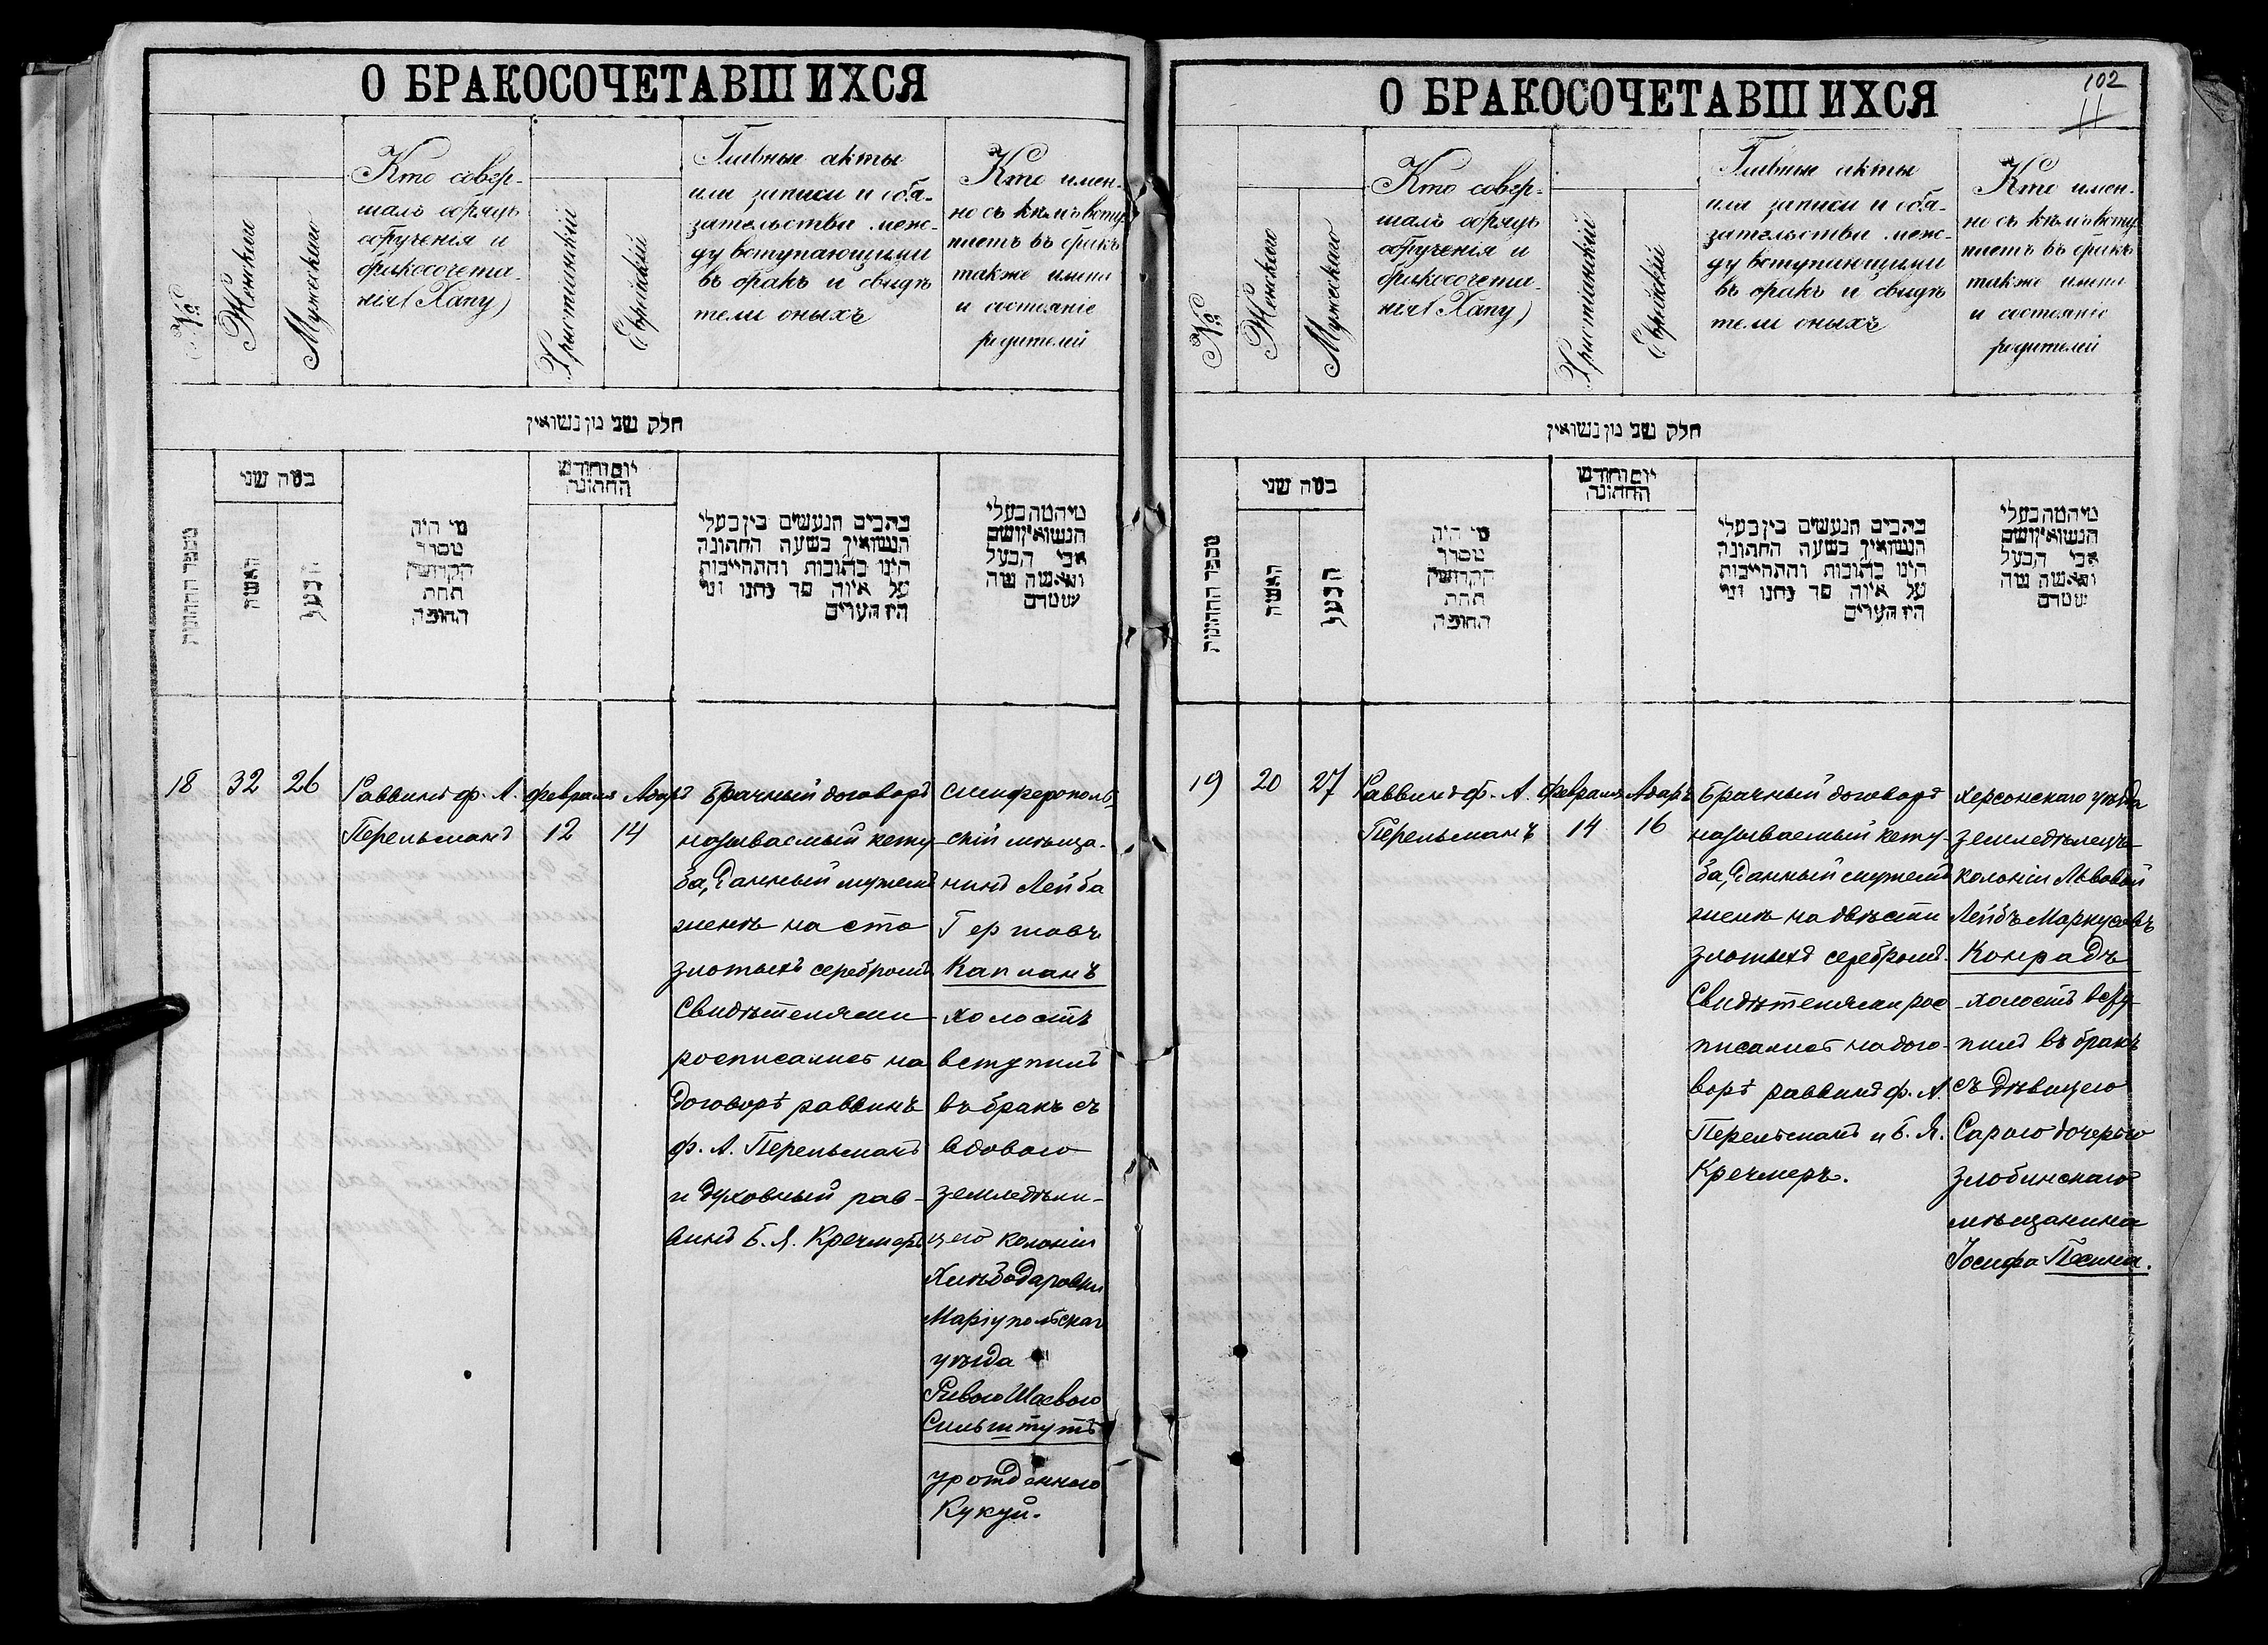 О БРАКОСОЧЕТАВШИХСЯ
№
Женскаго
Мужескаго
Кто совер-
шалъ обрядъ
обрученія и
бракосочета-
нія (Хапу)
Христіанскій
Еврейскій
Главные акты
или записи и обя-
зательства меж-
ду вступающими
въ бракъ и свидѣ
тели оныхъ
Кто имен-
но съ кѣмъ всту
паетъ въ бракъ
также имена
и состояніе
родителей
חלק שני מן נשואין
מספר החתונות
כמה שני
האשה
הבעל
מי היה
מסדר
הקדושין
תחת
החופה
יום וחודש
החתונה
כתבים הנעשים בין בעלי
הנשואין בשעה החתונה
הינו כתובות והתחייבות
על איזה סך נתנו ומי
היו העדים
מי המה בעלי
הנשואין ושם
אבי הבעל
והאשה
18
32
26
Раввинъ ф. А.
Перельманъ
Февраля
12
Адаръ
14
Брачный договоръ
называемый кету
ба, данный мужемъ
женѣ на сто
злотыхъ серебромъ
Свидѣтелями
росписались на
договорѣ раввинъ
ф. А. Перельманъ
и духовный рав-
винъ Б. Я. Кречмеръ
Симферополь
скій мѣща-
нинъ Лейба
Гершовъ
Капланъ
холостъ
вступилъ
въ бракъ съ
вдовою
земледѣли-
цею колоніи
Хлѣбодаровки
Маріупольскаг
уѣзда
Ривою Шаевою
Сильштутъ
урожденною
Кукуй.
О БРАКОСОЧЕТАВШИХСЯ
102
11
№
Женскаго
Мужескаго
Кто совер-
шалъ обрядъ
обрученія и
бракосочета-
нія (Хапу)
Христіанскій
Еврейскій
Главные акты
или записи и обя-
зательства меж-
ду вступающими
въ бракъ и свидѣ
тели оныхъ
Кто имен-
но съ кѣмъ всту
паетъ въ бракъ
также имена
и состояніе
родителей
חלק שני מן נשואין
מספר החתונות
כמה שני
האשה
הבעל
מי היה
מסדר
הקדושין
תחת
החופה
יום וחודש
החתונה
כתבים הנעשים בין בעלי
הנשואין בשעה החתונה
הינו כתובות והתחייבות
על איזה סך נתנו ומי
היו העדים
מי המה בעלי
הנשואין ושם
אבי הבעל
והאשה
19
20
27
Раввинъ ф. А.
Перельманъ
Февраля
14
Адаръ
16
Брачный договоръ
называемый кету-
ба, данный мужемъ
женѣ на двѣсти
злотыхъ серебромъ.
Свидѣтелями рос
писались на дого-
ворѣ раввинъ ф. А.
Перельманъ и Б. Я.
Кречмеръ.
Херсонскаго уѣзда
земледѣлецъ
колоніи Львовой
Лейбъ Маркусовъ
Конрадъ
холостъ всту-
пилъ въ бракъ
съ дѣвицею
Сарою дочерью
Злобинскаго
мѣщанина
Іосифа Песина.